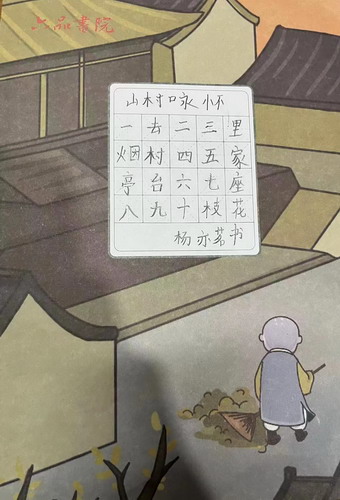 六品書院
山村咏怀
一去二三里
烟村四五家
亭台六七座
八九十枝花
杨亦茗书